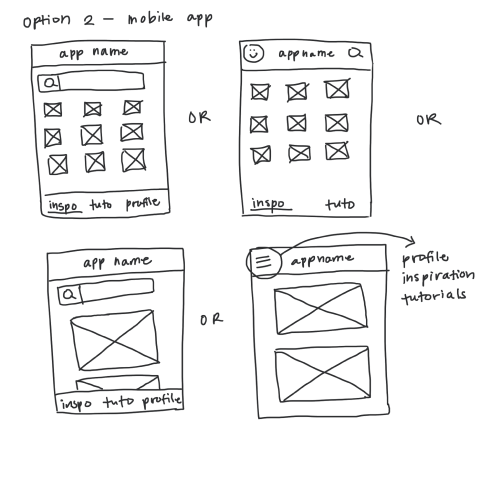 option 2 — mobile app
app name
inspo tuto profile
OR
appname
inspo tuto
OR
app name
inspo tuto profile
OR
appname
profile
inspiration
tutorials